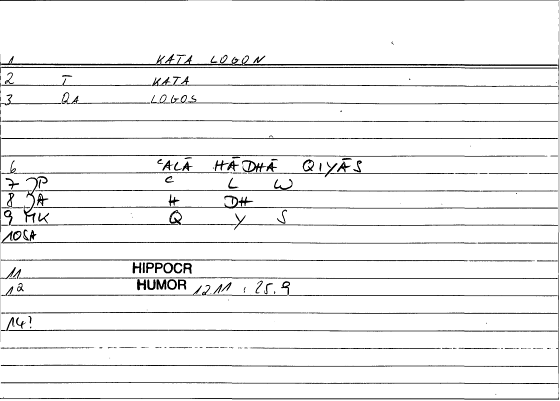 1 KATA LOGON
2 T KATA
3 QA LOGOS
6 ʿALĀ HĀDHĀ QIYĀS
7 JP ʿ L W
8 JA H DH
9 MK Q Y S
10 SA
11 HIPPOCR
12 HUMOR 1211 : 25.9
14?